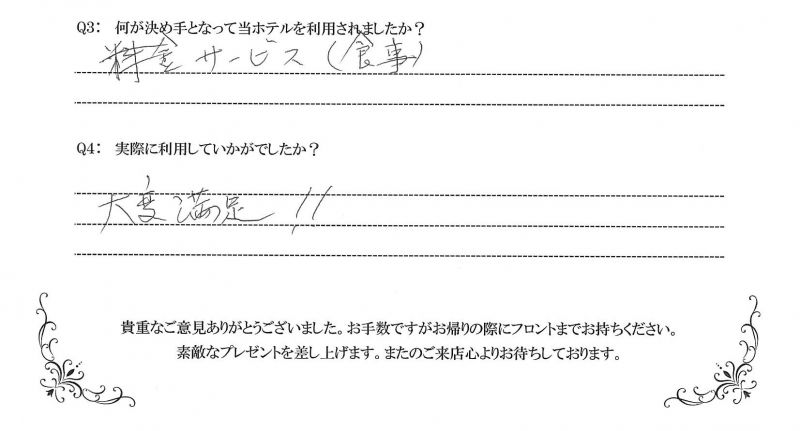 Q3： 何が決め手となって当ホテルを利用されましたか？
料金 サービス（食事）
Q4： 実際に利用していかがでしたか？
大変満足！！
貴重なご意見ありがとうございました。お手数ですがお帰りの際にフロントまでお持ちください。
素敵なプレゼントを差し上げます。またのご来店心よりお待ちしております。